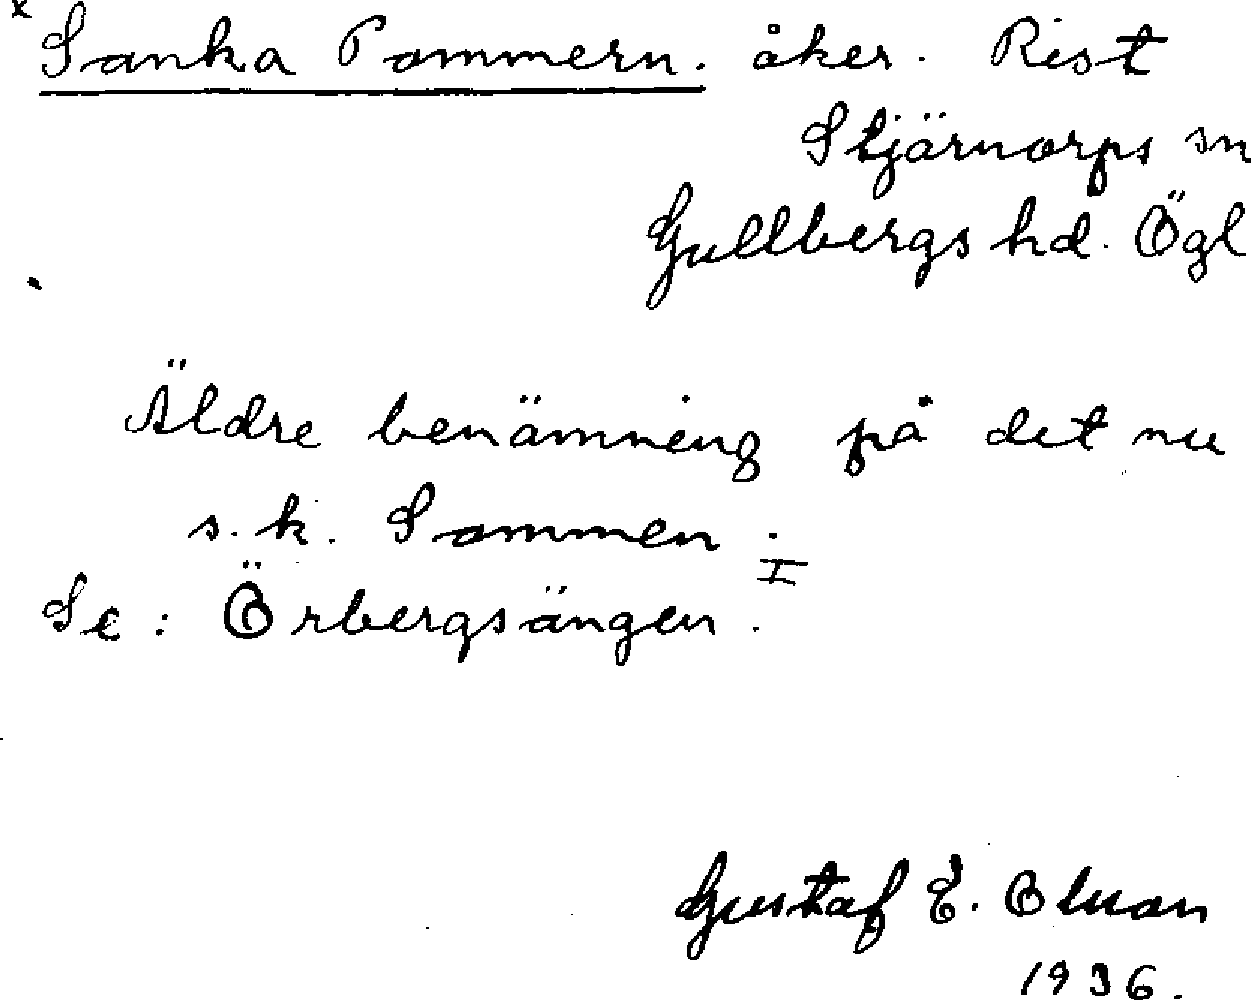 x Sanka Pommern. åker. Rist
Stjärnorps sn
Gullbergs hd. Ögl
Äldre benämning på det nu
s.k. Sommen.
I
Se: Örbergsängen.
Gustaf E. Olson
1936.